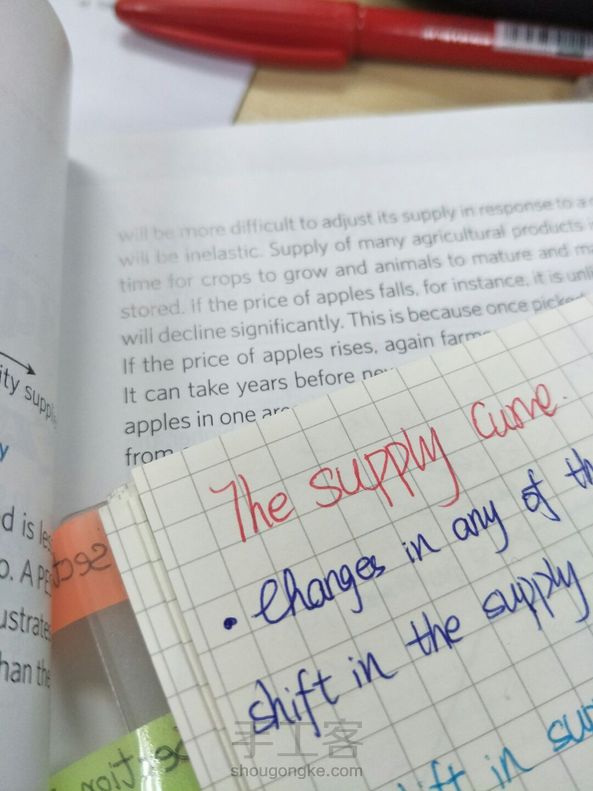 will be more difficult to adjust its supply in response to a
will be inelastic. Supply of many agricultural products
time for crops to grow and animals to mature and
stored. If the price of apples falls, for instance, it is
will decline significantly. This is because once picked
If the price of apples rises, again
It can take years before
apples in one
from
ity
y
d is
o. A
han the
The supply curve
• Changes in any of
shift in the supply
shift in
section
手工客
shougongke.com